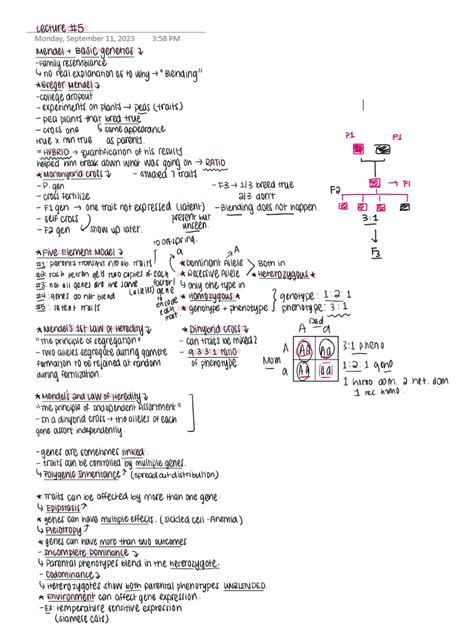 Lecture #5
Monday, September 11, 2023 3:58 PM
Mendel + Basic genetics ↓
-Family resemblance
↳ no real explanation as to why → "Blending"
* Gregor Mendel ↓
-college dropout
- experiments on plants → peas (traits)
- pea plants that bred true
- cross one ↳ same appearance
true x non true as parents.
= HYBRID → quantification of his results
helped him break down what was going on → RATIO
* Monohybrid cross ↓ - studied 7 traits
- P. gen
- cross fertilize
- F1 gen → one trait not expressed (latent)
- self cross
- F2 gen ↙ show up later.
present but
unseen.
- F3 → 1/3 breed true
2/3 don't
- Blending does not happen.
P1 P1
→ F1
F2
3:1
F3
* Five Element Model ↓
#1: parents transmit info ab. traits
to offspring.
#2: each person gets two copies of each factor
#3: not all genes are the same
(alleles) gene to encode each trait.
#4: genes do not blend
#5: latent traits
a A
* Dominant Allele
* Recessive Allele
Both in
* Heterozygous *
↳ only one type in
* Homozygous *
* genotype + phenotype
genotype: 1:2:1
phenotype: 3:1
* Mendel's 1st Law of Heredity ↓
"the principle of segregation"
- Two alleles segregate during gamete
formation to be rejoined at random
during fertilization.
* Dihybrid cross ↓
- can traits we mixed?
- 9:3:3:1 ratio
of phenotype
Dad
A a
Mom
A AA Aa
a Aa aa
3:1 pheno
1:2:1 geno
1 homo dom. 2 het. dom
1 rec homo.
* Mendel's 2nd Law of Heredity ↓
"the principle of Independent Assortment"
- In a dihybrid cross → the alleles of each
gene assort independently.
-genes are sometimes linked.
- traits can be controlled by multiple genes.
↳ Polygenic Inheritance ↗ (spread out distribution)
* Traits can be affected by more than one gene.
↳ Epistasis ↗
* genes can have multiple effects. (sickled cell-Anemia)
↳ Pleiotropy ↗
* genes can have more than two outcomes
- Incomplete Dominance ↓
↳ Parental phenotypes blend in the heterozygote.
- Codominance ↓
↳ Heterozygotes show both parental phenotypes UNBLENDED.
* Environment can affect gene expression.
- Ex: temperature sensitive expression
(siamese cats)